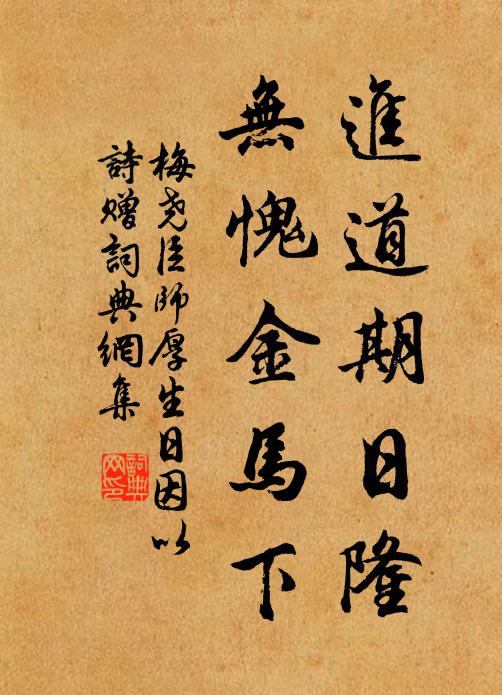 進道期日隆
無愧金馬下
梅堯臣師厚生日因以
詩贈詞典網集
詞典網印